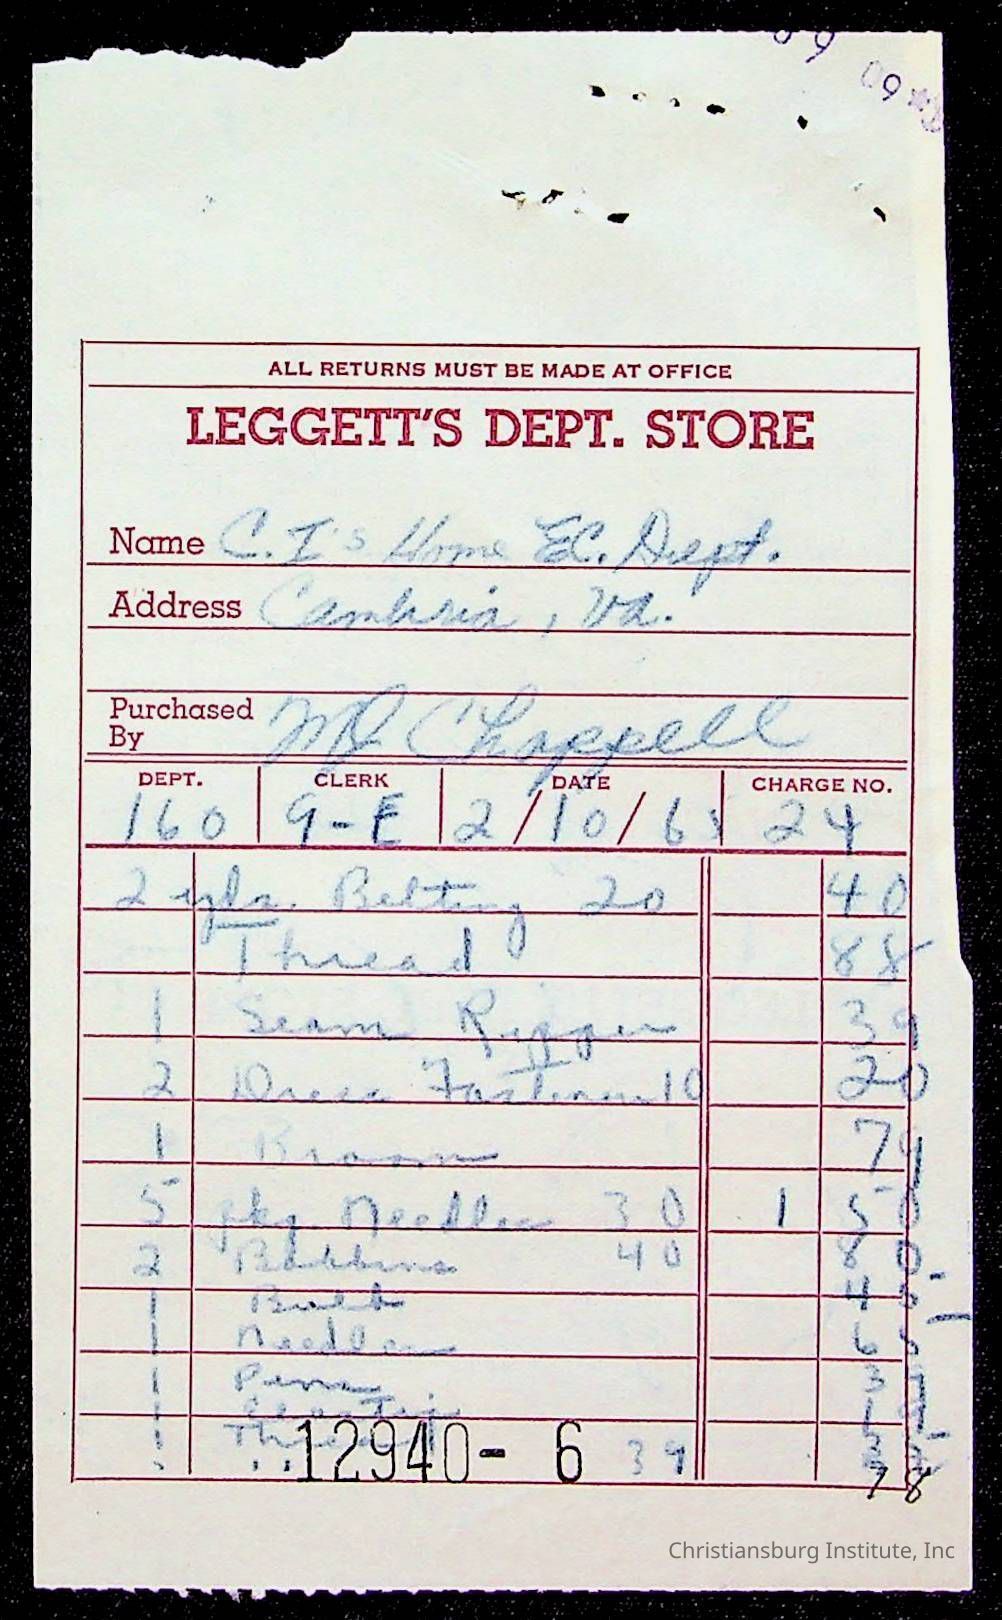 09
ALL RETURNS MUST BE MADE AT OFFICE
LEGGETT'S DEPT. STORE
Name C. I's Home EC. Dept.
Address Cambria, Va.
Purchased By Chappell
DEPT. CLERK DATE CHARGE NO.
160 9-E 2/10/65 24
2 yds. Belting 20 40
Thread 88
1 Seam Ripper 39
2 Dress Fasteners 10 20
1 Broom
5 pkg. Needles 30 1 50
2 Bobbins 40 80
1 45
1 Needles 65
1 Pins
1 Elastic
Thread 39
12940- 6
78
Christiansburg Institute, Inc